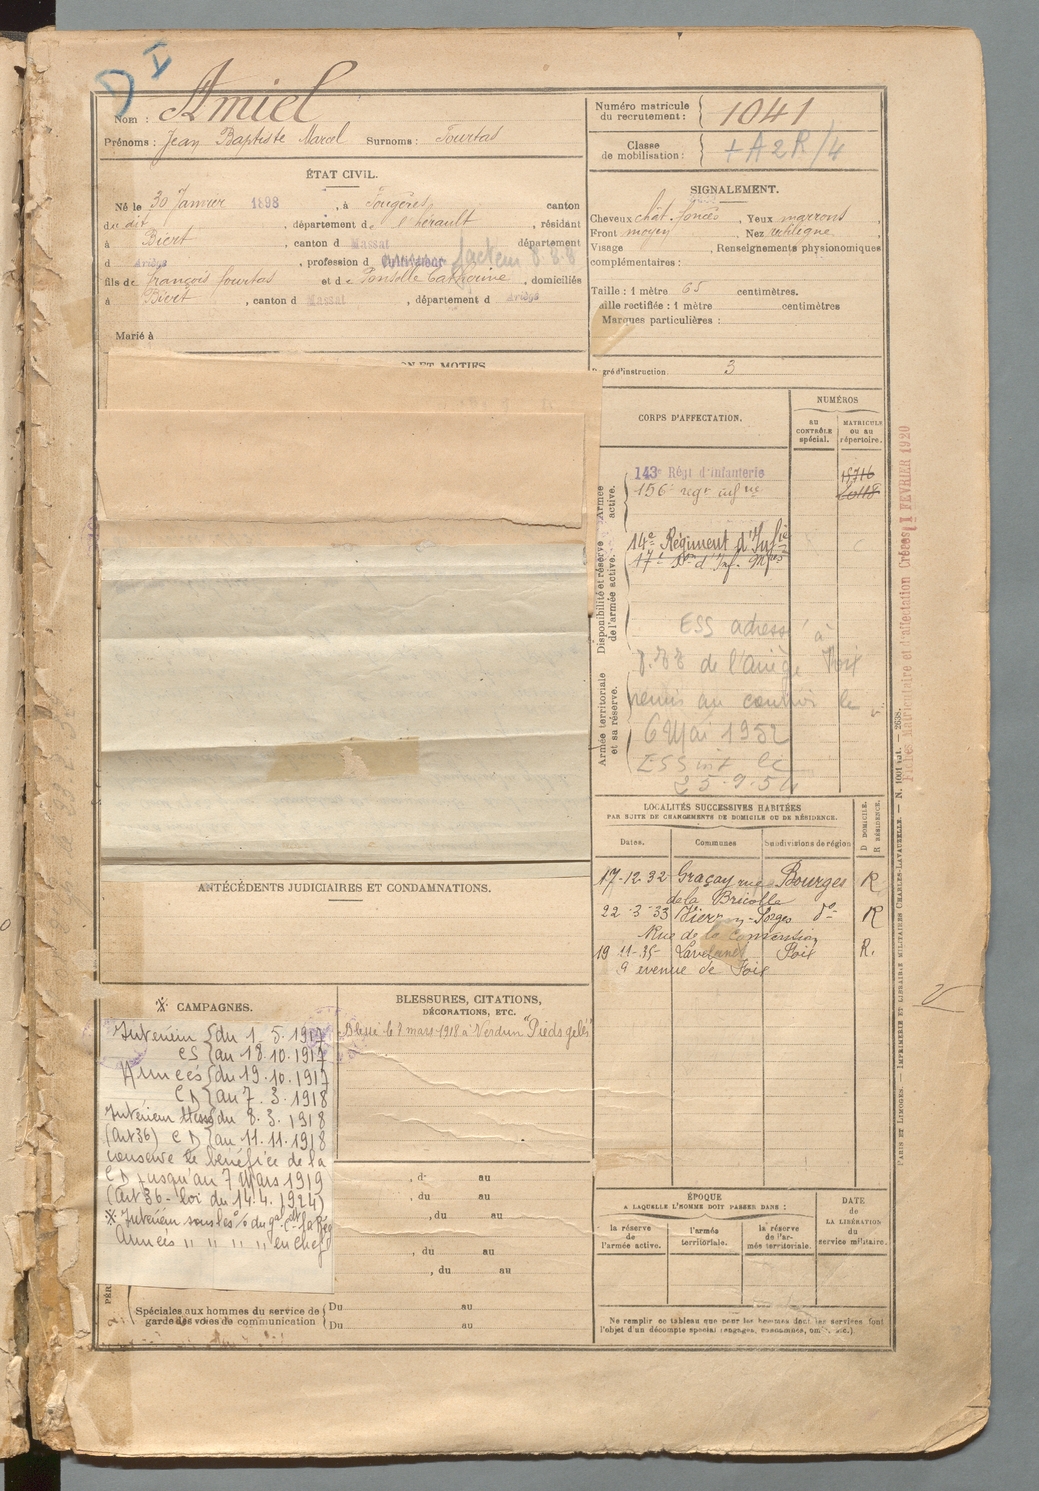 D I
Nom : Amiel
Prénoms : Jean Baptiste Marcel Surnoms : Fourtas
Numéro matricule
du recrutement : 1041
Classe
de mobilisation : +A2R/4
ÉTAT CIVIL.
Né le 30 Janvier 1898, à Fougères, canton
du dit, département de l'hérault, résidant
à Biert, canton d Massat département
d Ariège, profession d cultivateur facteur 8.8.8
fils de François fourtas et de Ponselle Catherine, domiciliés
à Biert, canton d Massat, département d Ariège
Marié à
SIGNALEMENT.
Cheveux chât. foncés, Yeux marrons,
Front moyen Nez rectiligne,
Visage , Renseignements physionomiques
complémentaires :
Taille : 1 mètre 65 centimètres.
aille rectifiée : 1 mètre centimètres
Marques particulières :
gré d'instruction. 3
N ET MOTIFS
CORPS D'AFFECTATION.
NUMÉROS
AU
CONTRÔLE
spécial.
MATRICULE
OU AU
répertoire.
Armée
active.
143e Régt d'Infanterie
156e regt inf rie
Disponibilité et réserve
de l'armée active.
14e Régiment d'Infie
17e Bon d'Inf. Mses
Armée territoriale
et sa réserve.
ESS adressé à
de l'Ariège
remis au le
6 Mai 1952
ESS int le
25.9.54
Fiches Matriculaire et d'affectation Créées 1 FEVRIER 1920
LOCALITÉS SUCCESSIVES HABITÉES
PAR SUITE DE CHANGEMENTS DE DOMICILE OU DE RÉSIDENCE.
D DOMICILE.
R RÉSIDENCE.
Dates. Communes Subdivisions de région
17-12-32 Graçay rue Bourges R
de la Bricolle
22-3-33 Vierzon-Forges do R
Rue de la Convention
19 11-35 Lavelanet Foix R.
9 avenue de Foix
ANTÉCÉDENTS JUDICIAIRES ET CONDAMNATIONS.
CAMPAGNES.
Intérieur { du 1.5.1917
CS { au 18.10.1917
Armées { du 19.10.1917
CD { au 7.3.1918
Intérieur du 8.3.1918
(art 36) CD { au 11.11.1918
conserve le bénéfice de la
CD jusqu'au 7 Mars 1919
(Art 36 - loi du 14.4.1924)
Armées " " " " en chef
BLESSURES, CITATIONS,
DÉCORATIONS, ETC.
Blessé le 8 mars 1918 à Verdun "Pieds gelés"
, d au
, du au
, du au
, du au
, du au
Spéciales aux hommes du service de
garde des voies de communication
Du au
Du au
ÉPOQUE
A LAQUELLE L'HOMME DOIT PASSER DANS :
la réserve
de
l'armée active.
l'armée
territoriale.
la réserve
de l'ar-
mée territoriale.
DATE
de
LA LIBÉRATION
du
service militaire.
Ne remplir ce tableau que pour les hommes dont les services font
l'objet d'un décompte spécial (engagés, etc.).
PARIS ET LIMOGES. — IMPRIMERIE ET LIBRAIRIE MILITAIRES CHARLES-LAVAUZELLE.